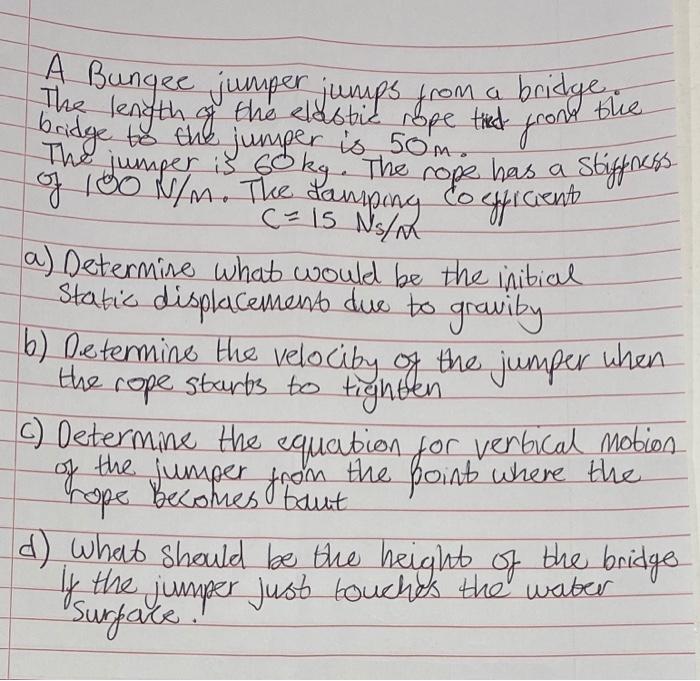 A Bungee jumper jumps from a bridge.
The length of the elastic rope tied from the
bridge to the jumper is 50m.
The jumper is 60kg. The rope has a stiffness
of 100 N/m. The damping coefficient
C = 15 Ns/m
a) Determine what would be the initial
static displacement due to gravity
b) Determine the velocity of the jumper when
the rope starts to tighten
c) Determine the equation for vertical motion
of the jumper from the point where the
rope becomes taut
d) what should be the height of the bridge
if the jumper just touches the water
surface.